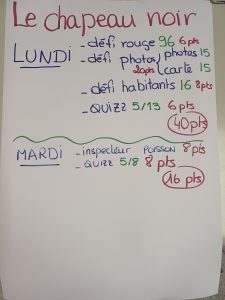 Le chapeau noir
LUNDI - défi rouge 96 6pts
- défi photos photos 15
20pts carte 15
- défi habitants 16 8pts
- QUIZZ 5/13 6 pts
40pts
MARDI - inspecteur POISSON 8 pts
- QUIZZ 5/8 8 pts
16 pts